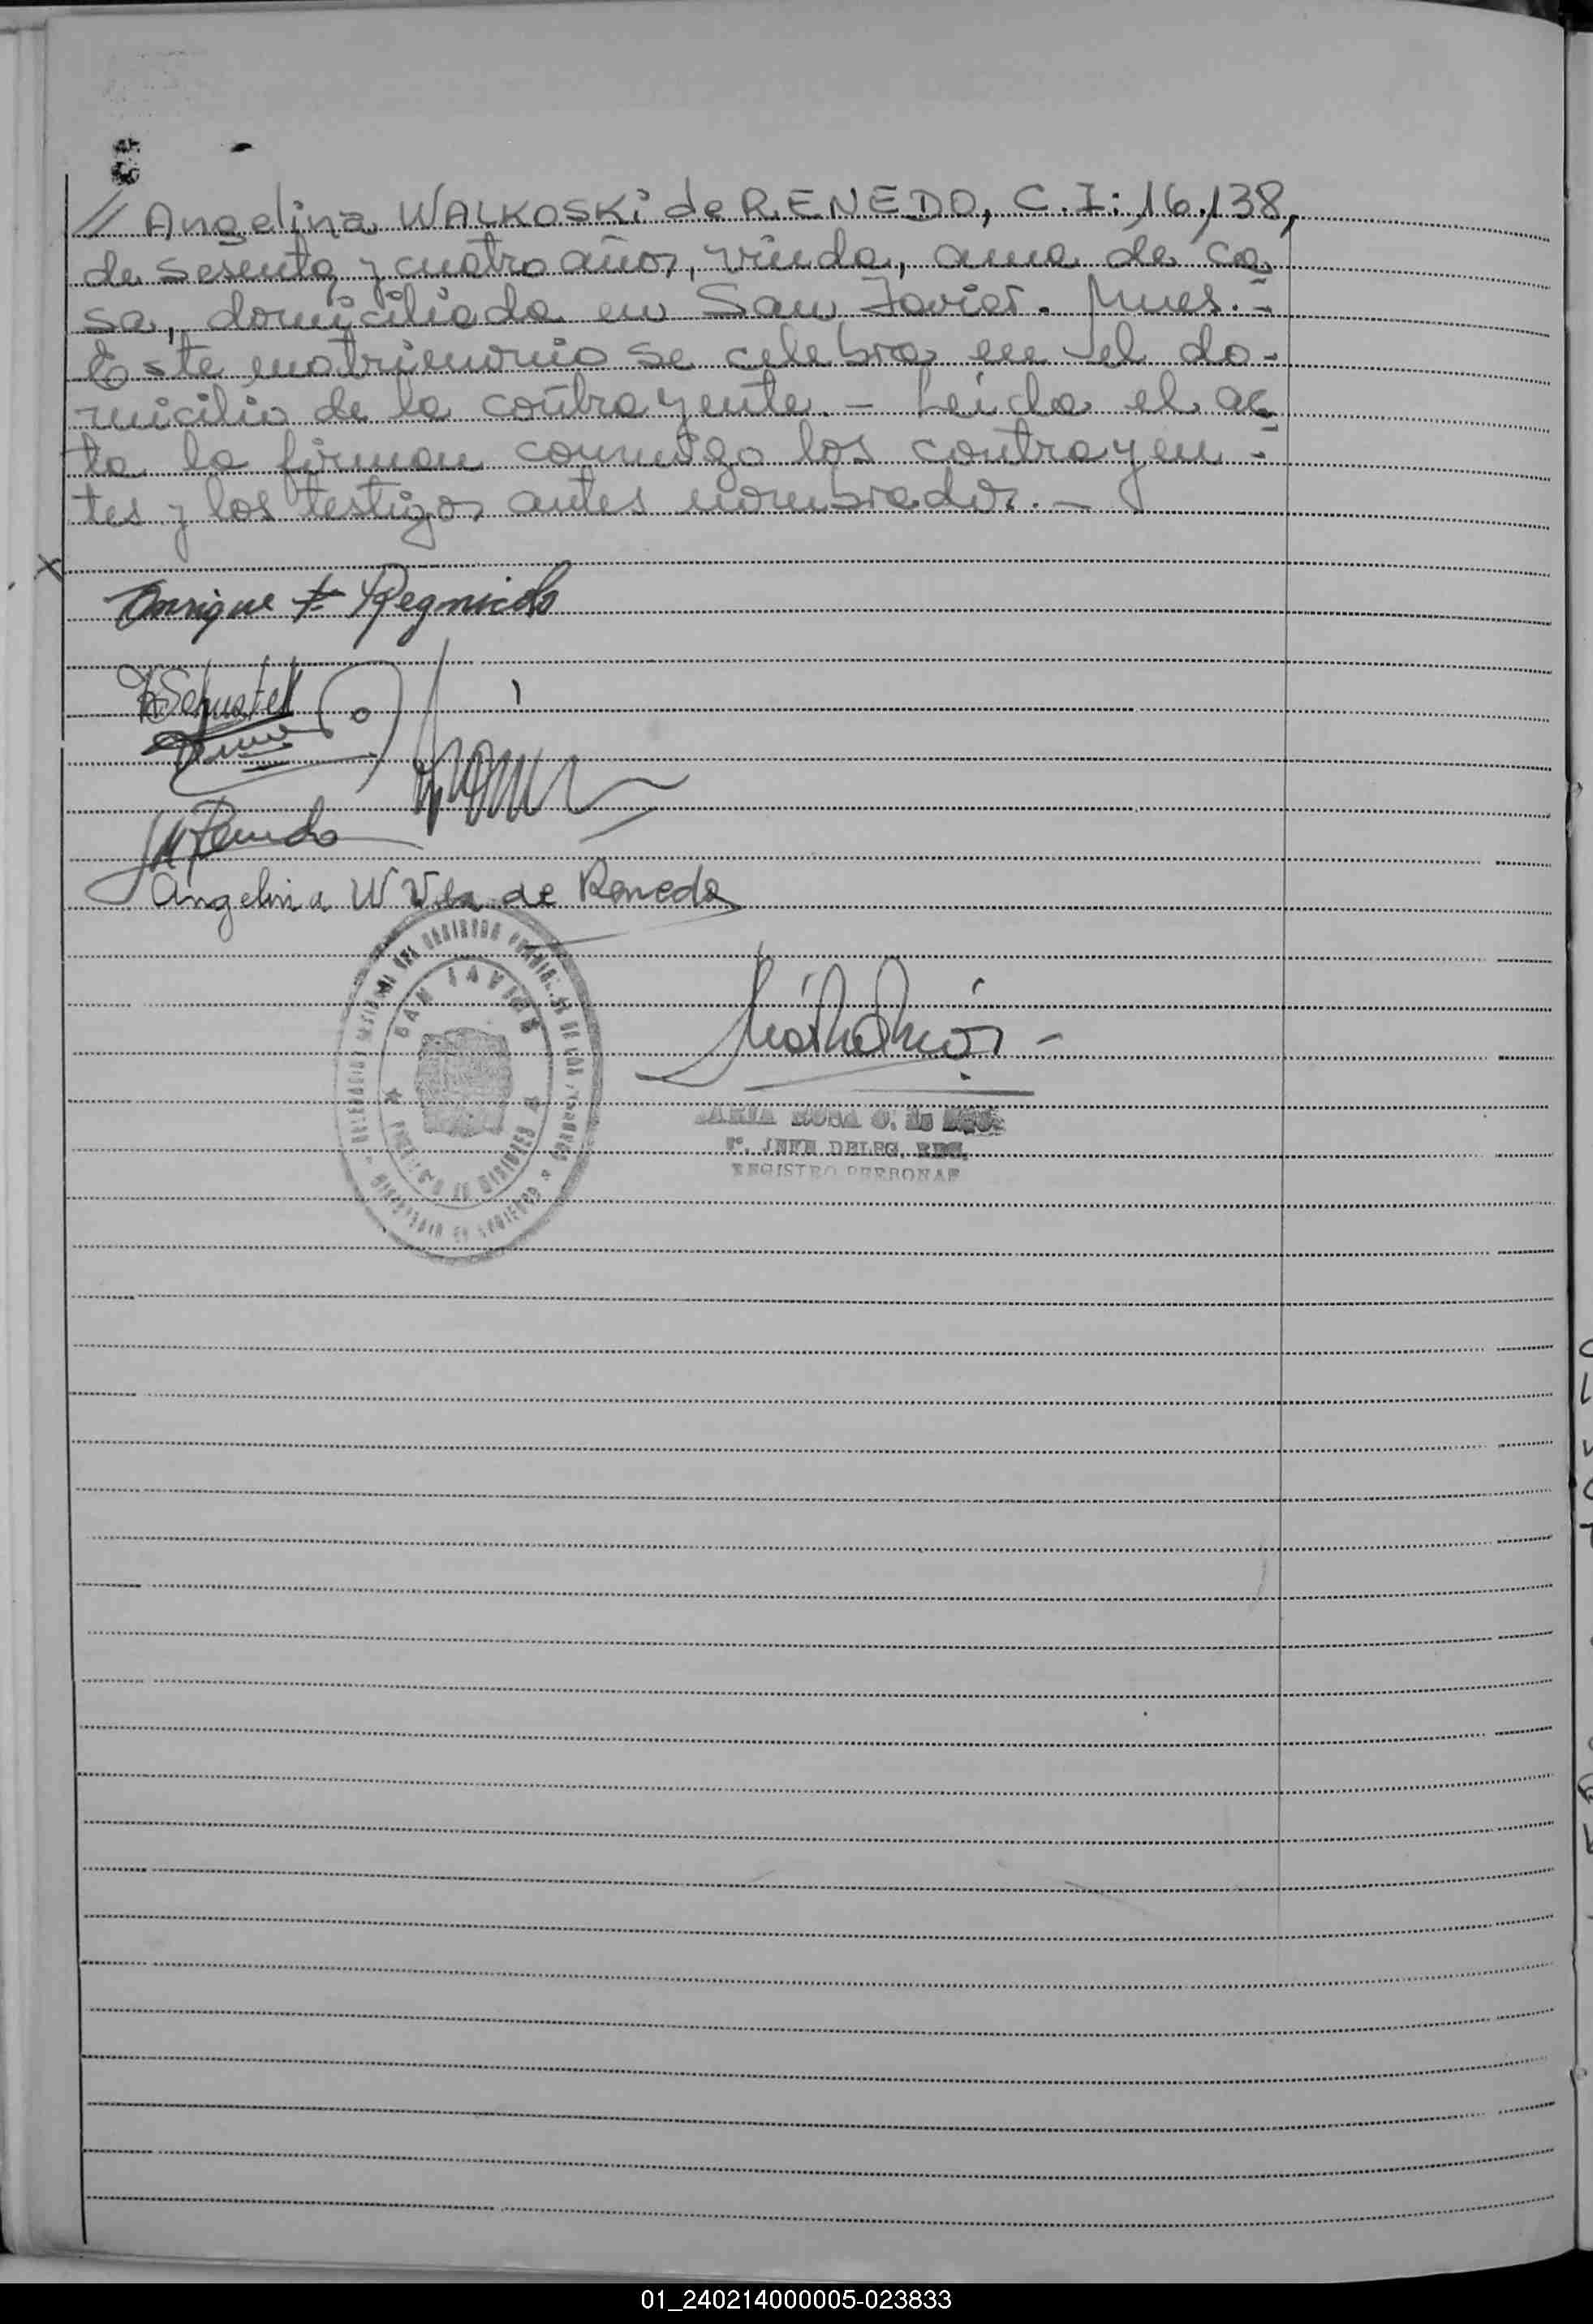 // Angelina WALKOSKi de RENEDO, C.I: 16.138,
de sesenta y cuatro años, viuda, ama de ca
sa, domiciliada en San Javier. Mnes. -
Este matrimonio se celebra en el do-
micilio de la contrayente. - Leida el ac
ta la firman conmigo los contrayen-
tes y los testigos antes nombrados. -
x
Enrique F Regnicolo
Schuster
Angelina W Vda de Renedo
SAN JAVIER
MARIA ROSA
JEFE DELEG.
REGISTRO PERSONAS
01_240214000005-023833